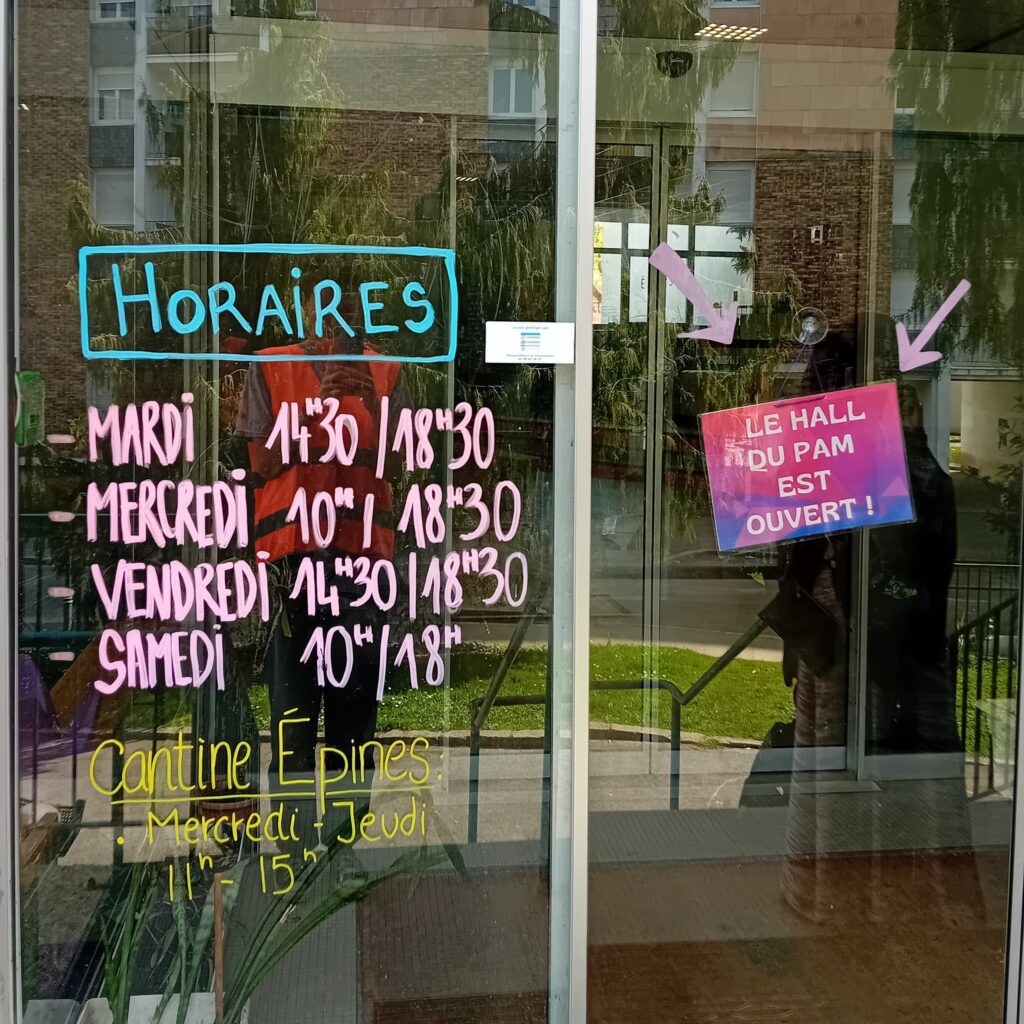 HORAIRES
MARDI 14H30 / 18H30
MERCREDI 10H / 18H30
VENDREDI 14H30 / 18H30
SAMEDI 10H / 18H
Cantine Épines :
. Mercredi - Jeudi
11h - 15h
LE HALL
DU PAM
EST
OUVERT !